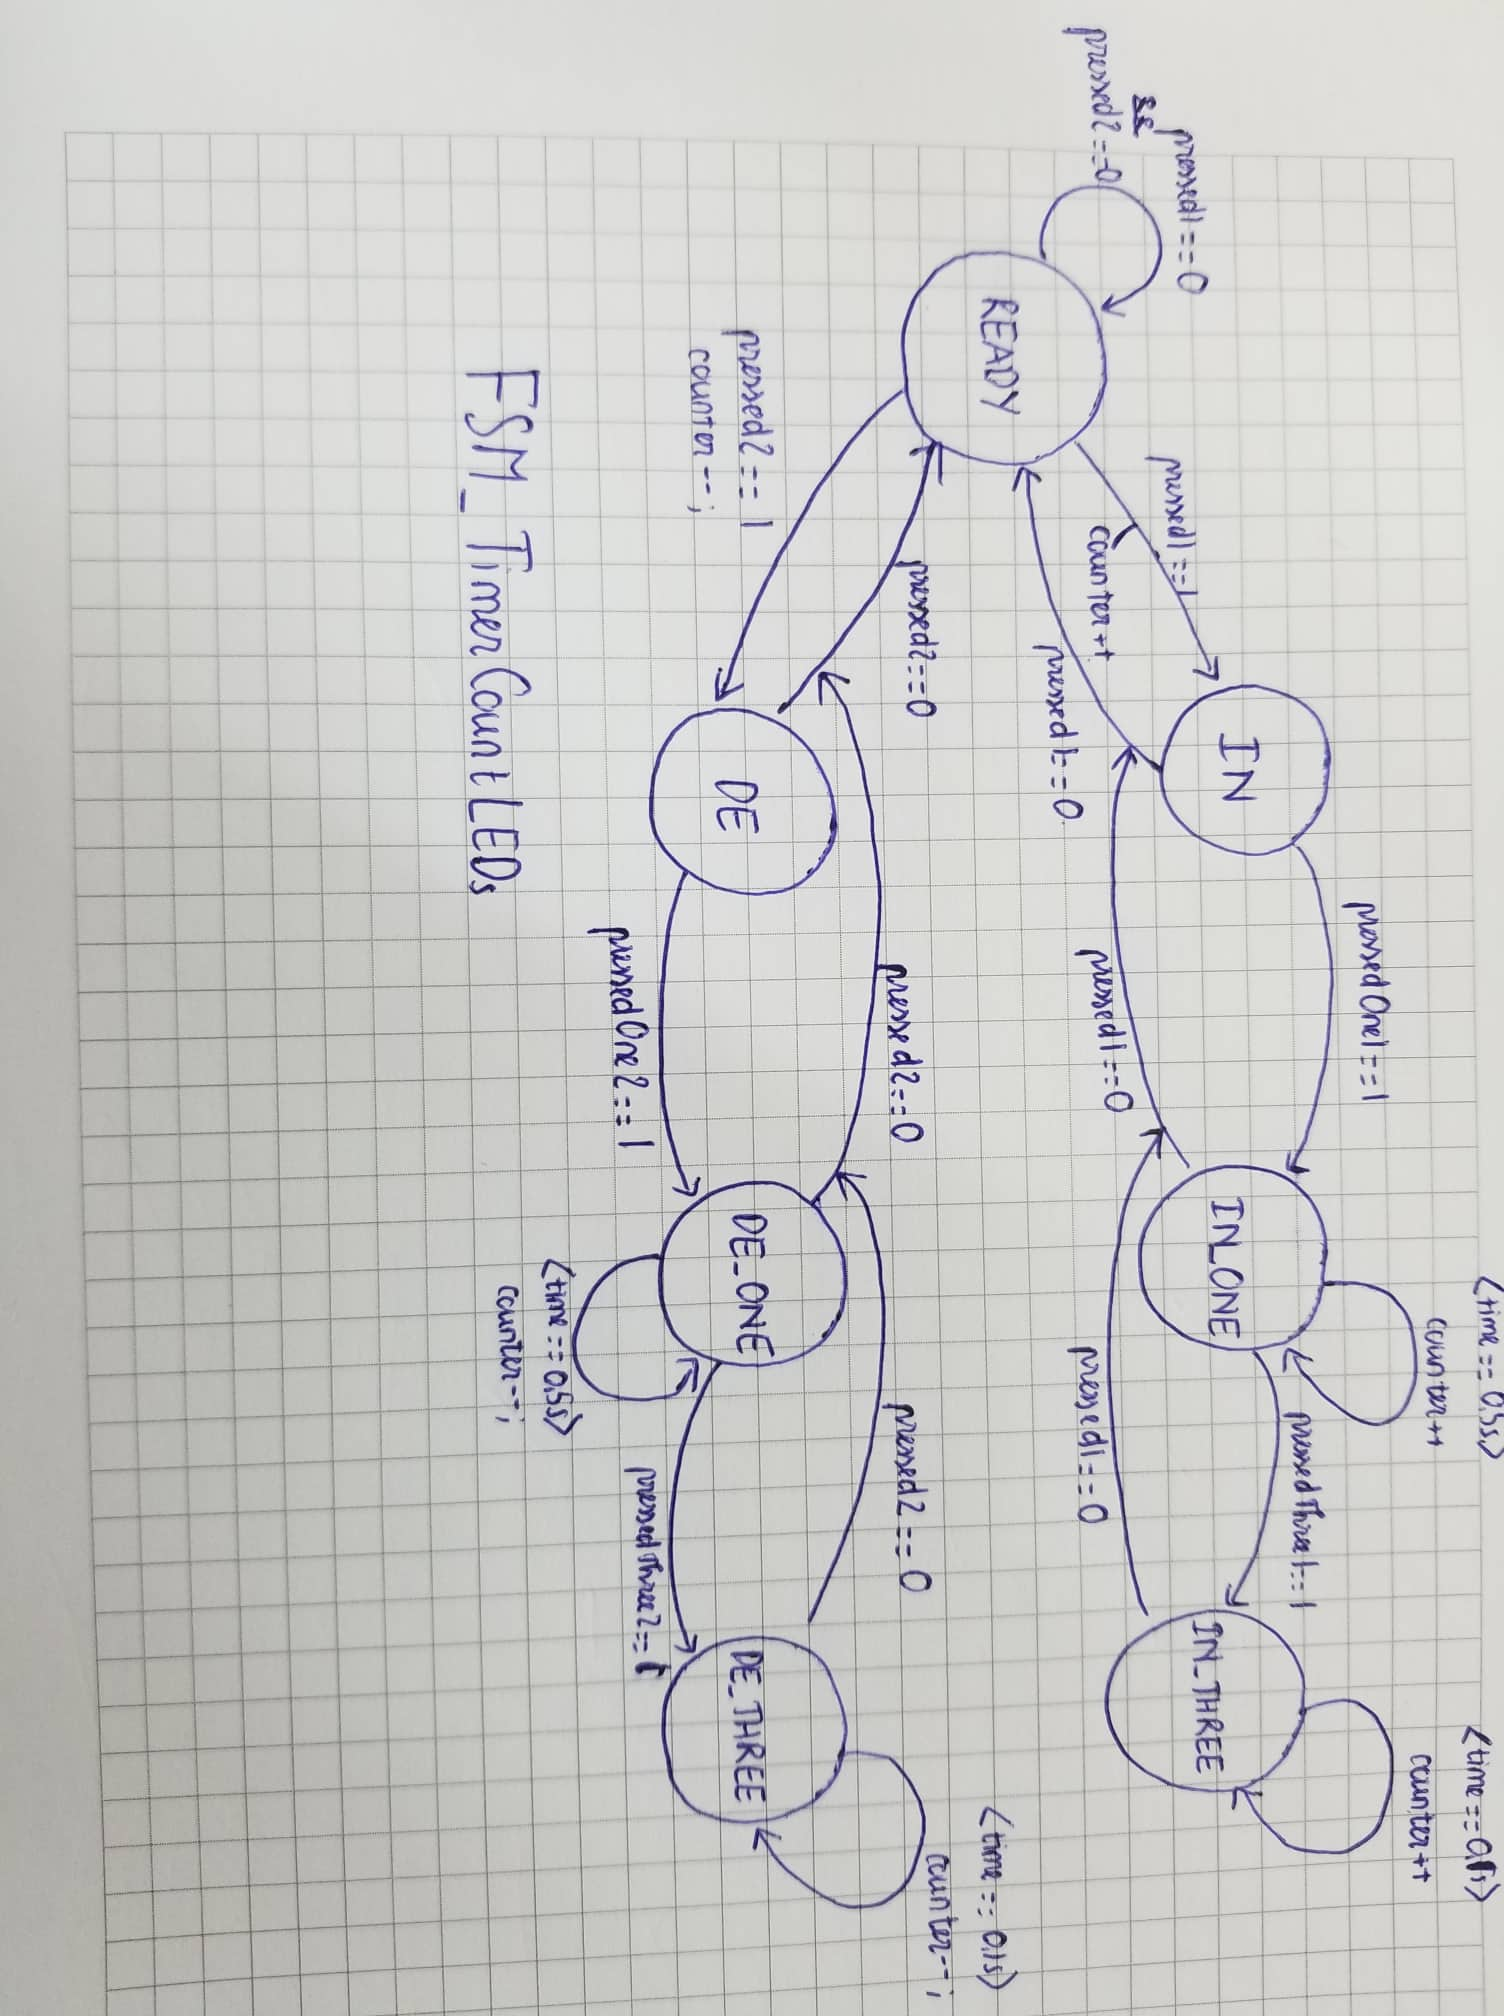 pressed1==0
&&
pressed2==0
READY
pressed1==1
counter++
pressed1==0
IN
pressedOne1==1
pressed1==0
IN_ONE
<time==0.5s>
counter++
pressedThree1==1
pressed1==0
IN_THREE
<time==0.1s>
counter++
pressed2==1
counter--;
pressed2==0
DE
pressedOne2==1
pressed2==0
DE_ONE
<time==0.5s>
counter--;
pressedThree2==1
pressed2==0
DE_THREE
<time==0.1s>
counter--;
FSM_TimerCountLEDs